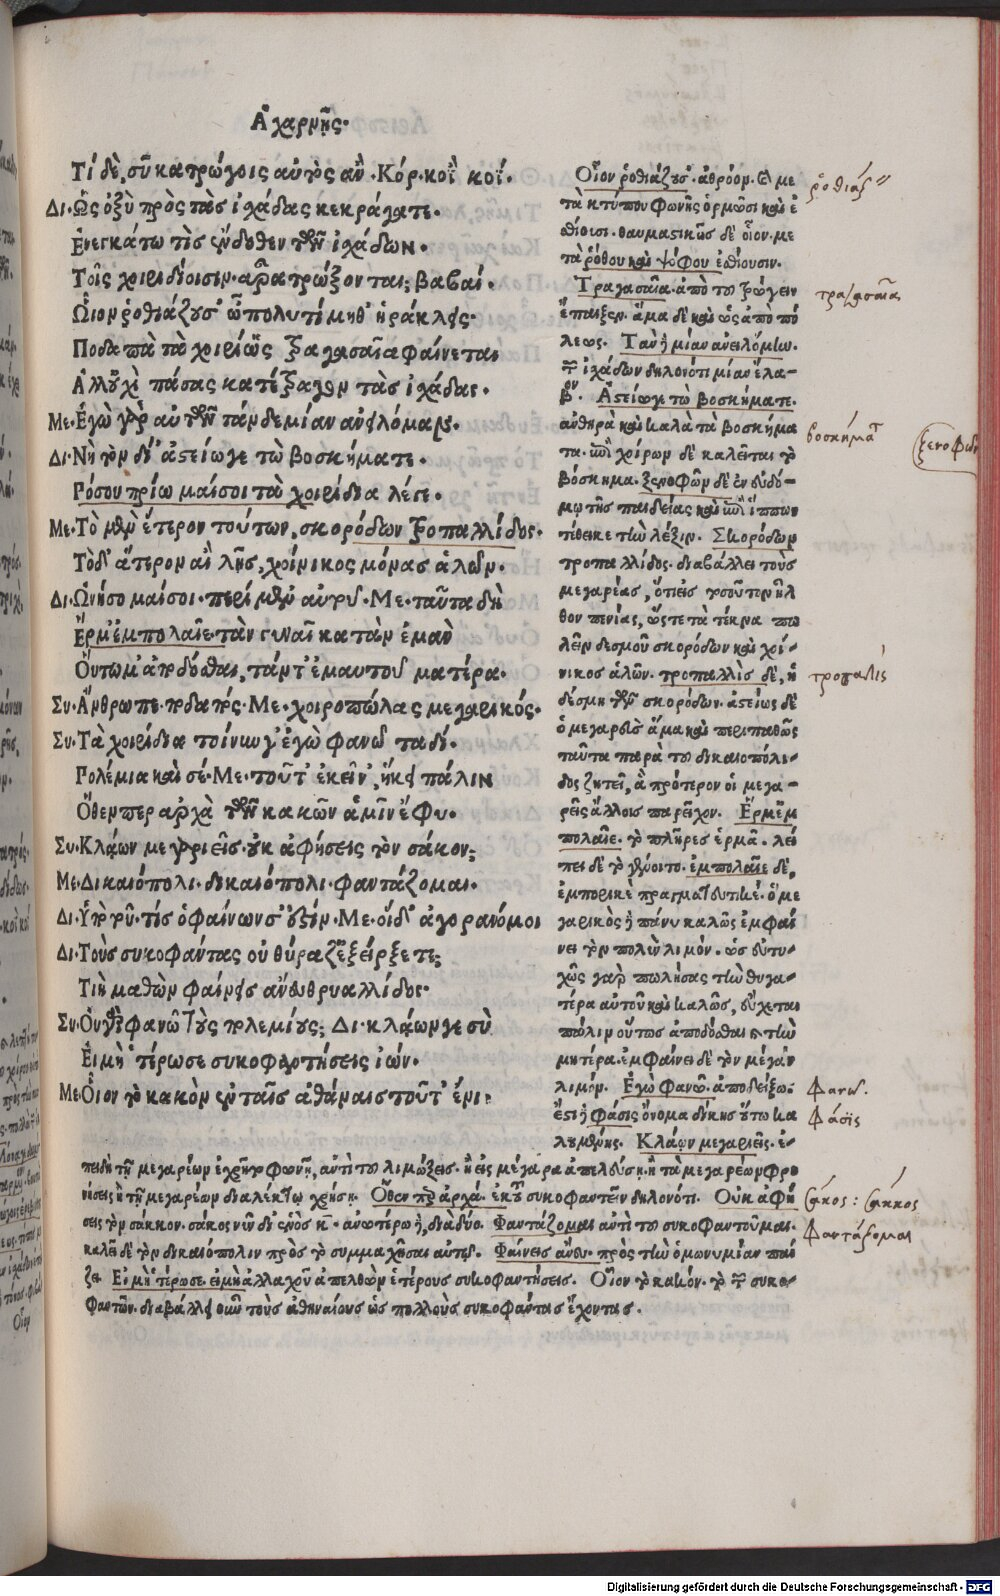 Ἀχαρνῆς.
Τί δὲ, σῦ κατρώγοις αὐτὸς ἄν. Κόρ. κοῒ κοί.
Δι. Ὡς ὀξὺ πρὸς τὰς ἰχάδας κεκράγατε.
Ἐνεγκάτω τὶς ἔνδοθεν τῶν ἰχάδων.
Τοῖς χοιριδίοισιν. ἆρα τρώξονται; βαβαί.
Οἷον ῥοθιάζουσ' ὦ πολυτίμηθ' ἡράκλεις.
Ποδαπὰ τὰ χοιρί' ὡς τραγασαῖα φαίνεται
Ἀλλ' οὐχὶ πάσας κατέτραγον τὰς ἰχάδας.
Με. Ἐγὼ γὰρ αὐτῶν τάνδε μίαν ἀνειλόμαν.
Δι. Νὴ τὸν δί' ἀστείω γε τὼ βοσκήματε.
Πόσου πρίωμαί σοι τὰ χοιρίδια λέγε.
Με. Τὸ μὲν ἕτερον τούτων, σκορόδων τροπαλλίδος.
Τὸ δ' ἅτερον αἲ λῇς, χοίνικος μόνας ἁλῶν.
Δι. Ὠνήσομαί σοι. περίμεν' αὐτοῦ. Με. ταῦτα δὴ
Ἑρμ' ἐμπολαῖε. τὰν γυναῖκα τὰν ἐμὰν
Οὕτω μ' ἀποδόσθαι, τάν τ' ἐμαυτοῦ ματέρα.
Συ. Ἄνθρωπε. ποδαπός. Με. χοιροπώλας μεγαρικός.
Συ. Τὰ χοιρίδια τοίνυν γ' ἐγὼ φανῶ ταδί.
Πολέμια καὶ σέ. Με. τοῦτ' ἐκεῖν', ἥκει πάλιν
Ὅθεν περ ἀρχὰ τῶν κακῶν ἁμῖν ἔφυ.
Συ. Κλάων μεγαριεῖς. οὐκ ἀφήσεις τὸν σάκον;
Με. Δικαιόπολι. δικαιόπολι. φαντάζομαι.
Δι. Ὑπὸ τοῦ. τίς ὁ φαίνων σ' ἐστίν. Με. οἱ δ' ἀγορανόμοι
Δι. Τοὺς συκοφάντας οὐ θύραζ' ἐξείρξετε;
Τιὴ μαθὼν φαίνεις ἄνευ θρυαλλίδος.
Συ. Οὐ γὰρ φανῶ τοὺς πολεμίους; Δι. κλάων γε σὺ
Εἰ μὴ 'τέρωσε συκοφαντήσεις ἰών.
Με. Οἷον τὸ κακὸν ἐν ταῖς ἀθάναις τοῦτ' ἔνι.
Οἷον ῥοθιάζουσ'. ἀθρόον. ἢ με
τὰ κτύπου φωνῆς ὁρμῶσι καὶ ἐ
σθίουσι. θαυμαστικῶς δὲ οἷον. με
τὰ ῥόθου καὶ ψόφου ἐσθίουσιν.
Τραγασαῖα. ἀπὸ τοῦ τρώγειν
ἔπαιξεν. ἅμα δὲ καὶ ὡς ἀπὸ πό
λεως. Τὰν ἢ μίαν ἀνειλόμαν.
τῶν ἰχάδων δηλονότι μίαν ἔλα-
βον. Ἀστείω γε τὼ βοσκήματε.
ἀνθηρὰ καὶ καλὰ τὰ βοσκήμα
τα. ἐπὶ χοίρων δὲ καλεῖται τὸ
βόσκημα. ξενοφῶν δὲ ἐν δευδό-
μῳ τῆς παιδείας καὶ ἐπὶ ἵππων
τέθεικε τὴν λέξιν. Σκορόδων
τροπαλλίδος. διαβάλλει τοὺς
μεγαρέας, ὅτι εἰς τοσοῦτον ἦλ
θον πενίας, ὥστε τὰ τέκνα πω
λεῖν δεσμοῦ σκορόδων καὶ χοί-
νικος ἁλῶν. τροπαλλὶς δὲ, ἡ
δέσμη τῶν σκορόδων. ἀστείως δὲ
ὁ μεγαρεὺς ἅμα καὶ περιπαθῶς
ταῦτα παρὰ τοῦ δικαιοπόλι-
δος ζητεῖ, ἃ πρότερον οἱ μεγα-
ρεῖς ἄλλοις παρεῖχον. Ἑρμῆ ἐμ
πολαῖε. τὸ πλῆρες ἑρμᾶ. λεί
πει δὲ τὸ γένοιτο. ἐμπολαῖε δὲ,
ἐμπορικὲ πραγματευτικέ. ὁ με
γαρικὸς ἢ πάνυ καλῶς ἐμφαί
νει τὸν πολὺν λιμόν. ὡς εὐτυ-
χῶς γὰρ πωλήσας τὴν θυγα-
τέρα αὐτοῦ καὶ καλῶς, εὔχεται
πάλιν οὕτως ἀποδόσθαι καὶ τὴν
μητέρα. ἐμφαίνει δὲ τὸν μέγαν
λιμόν. Ἐγὼ φανῶ. ἀποδείξω.
ἔστι ἢ φάσις ὄνομα δίκης οὕτω κα
λουμένης. Κλάων μεγαριεῖς. ἐ-
πειδὴ τῇ μεγαρέων ἐχρῆτο φωνῇ, ἀντὶ τοῦ λιμώξεις. ἢ εἰς μέγαρα ἀπελεύσῃ. ἢ τὰ μεγαρέων φρο
νήσεις ἢ τῇ μεγαρέων διαλέκτῳ χρήσῃ. Ὅθεν περ ἀρχά. ἐκ τοῦ συκοφαντεῖν δηλονότι. Οὐκ ἀφή
σεις τὸν σάκκον. σάκος νῦν δι' ἑνὸς κ. ἀνωτέρω ἢ, διὰ δύο. Φαντάζομαι ἀντὶ τοῦ συκοφαντοῦμαι.
καλεῖ δὲ τὸν δικαιόπολιν πρὸς τὸ συμμαχῆσαι αὐτῷ. Φαίνεις ἄνευ. πρὸς τὴν ὁμωνυμίαν παί
ζει. Εἰ μὴ 'τέρωσε. εἰ μὴ ἀλλαχοῦ ἀπελθὼν ἑτέρους συκοφαντήσεις. Οἷον τὸ κακόν. τὸ τῶν συκο-
φαντῶν. διαβάλλει οὖν τοὺς ἀθηναίους ὡς πολλοὺς συκοφάντας ἔχοντας.
ῥοθιάζ
τραγασαῖα
βοσκήματ
ξενοφῶν
τροπαλίς
φανῶ.
φάσις
σάκος: σάκκος
φαντάζομαι
Digitalisierung gefördert durch die Deutsche Forschungsgemeinschaft - DFG